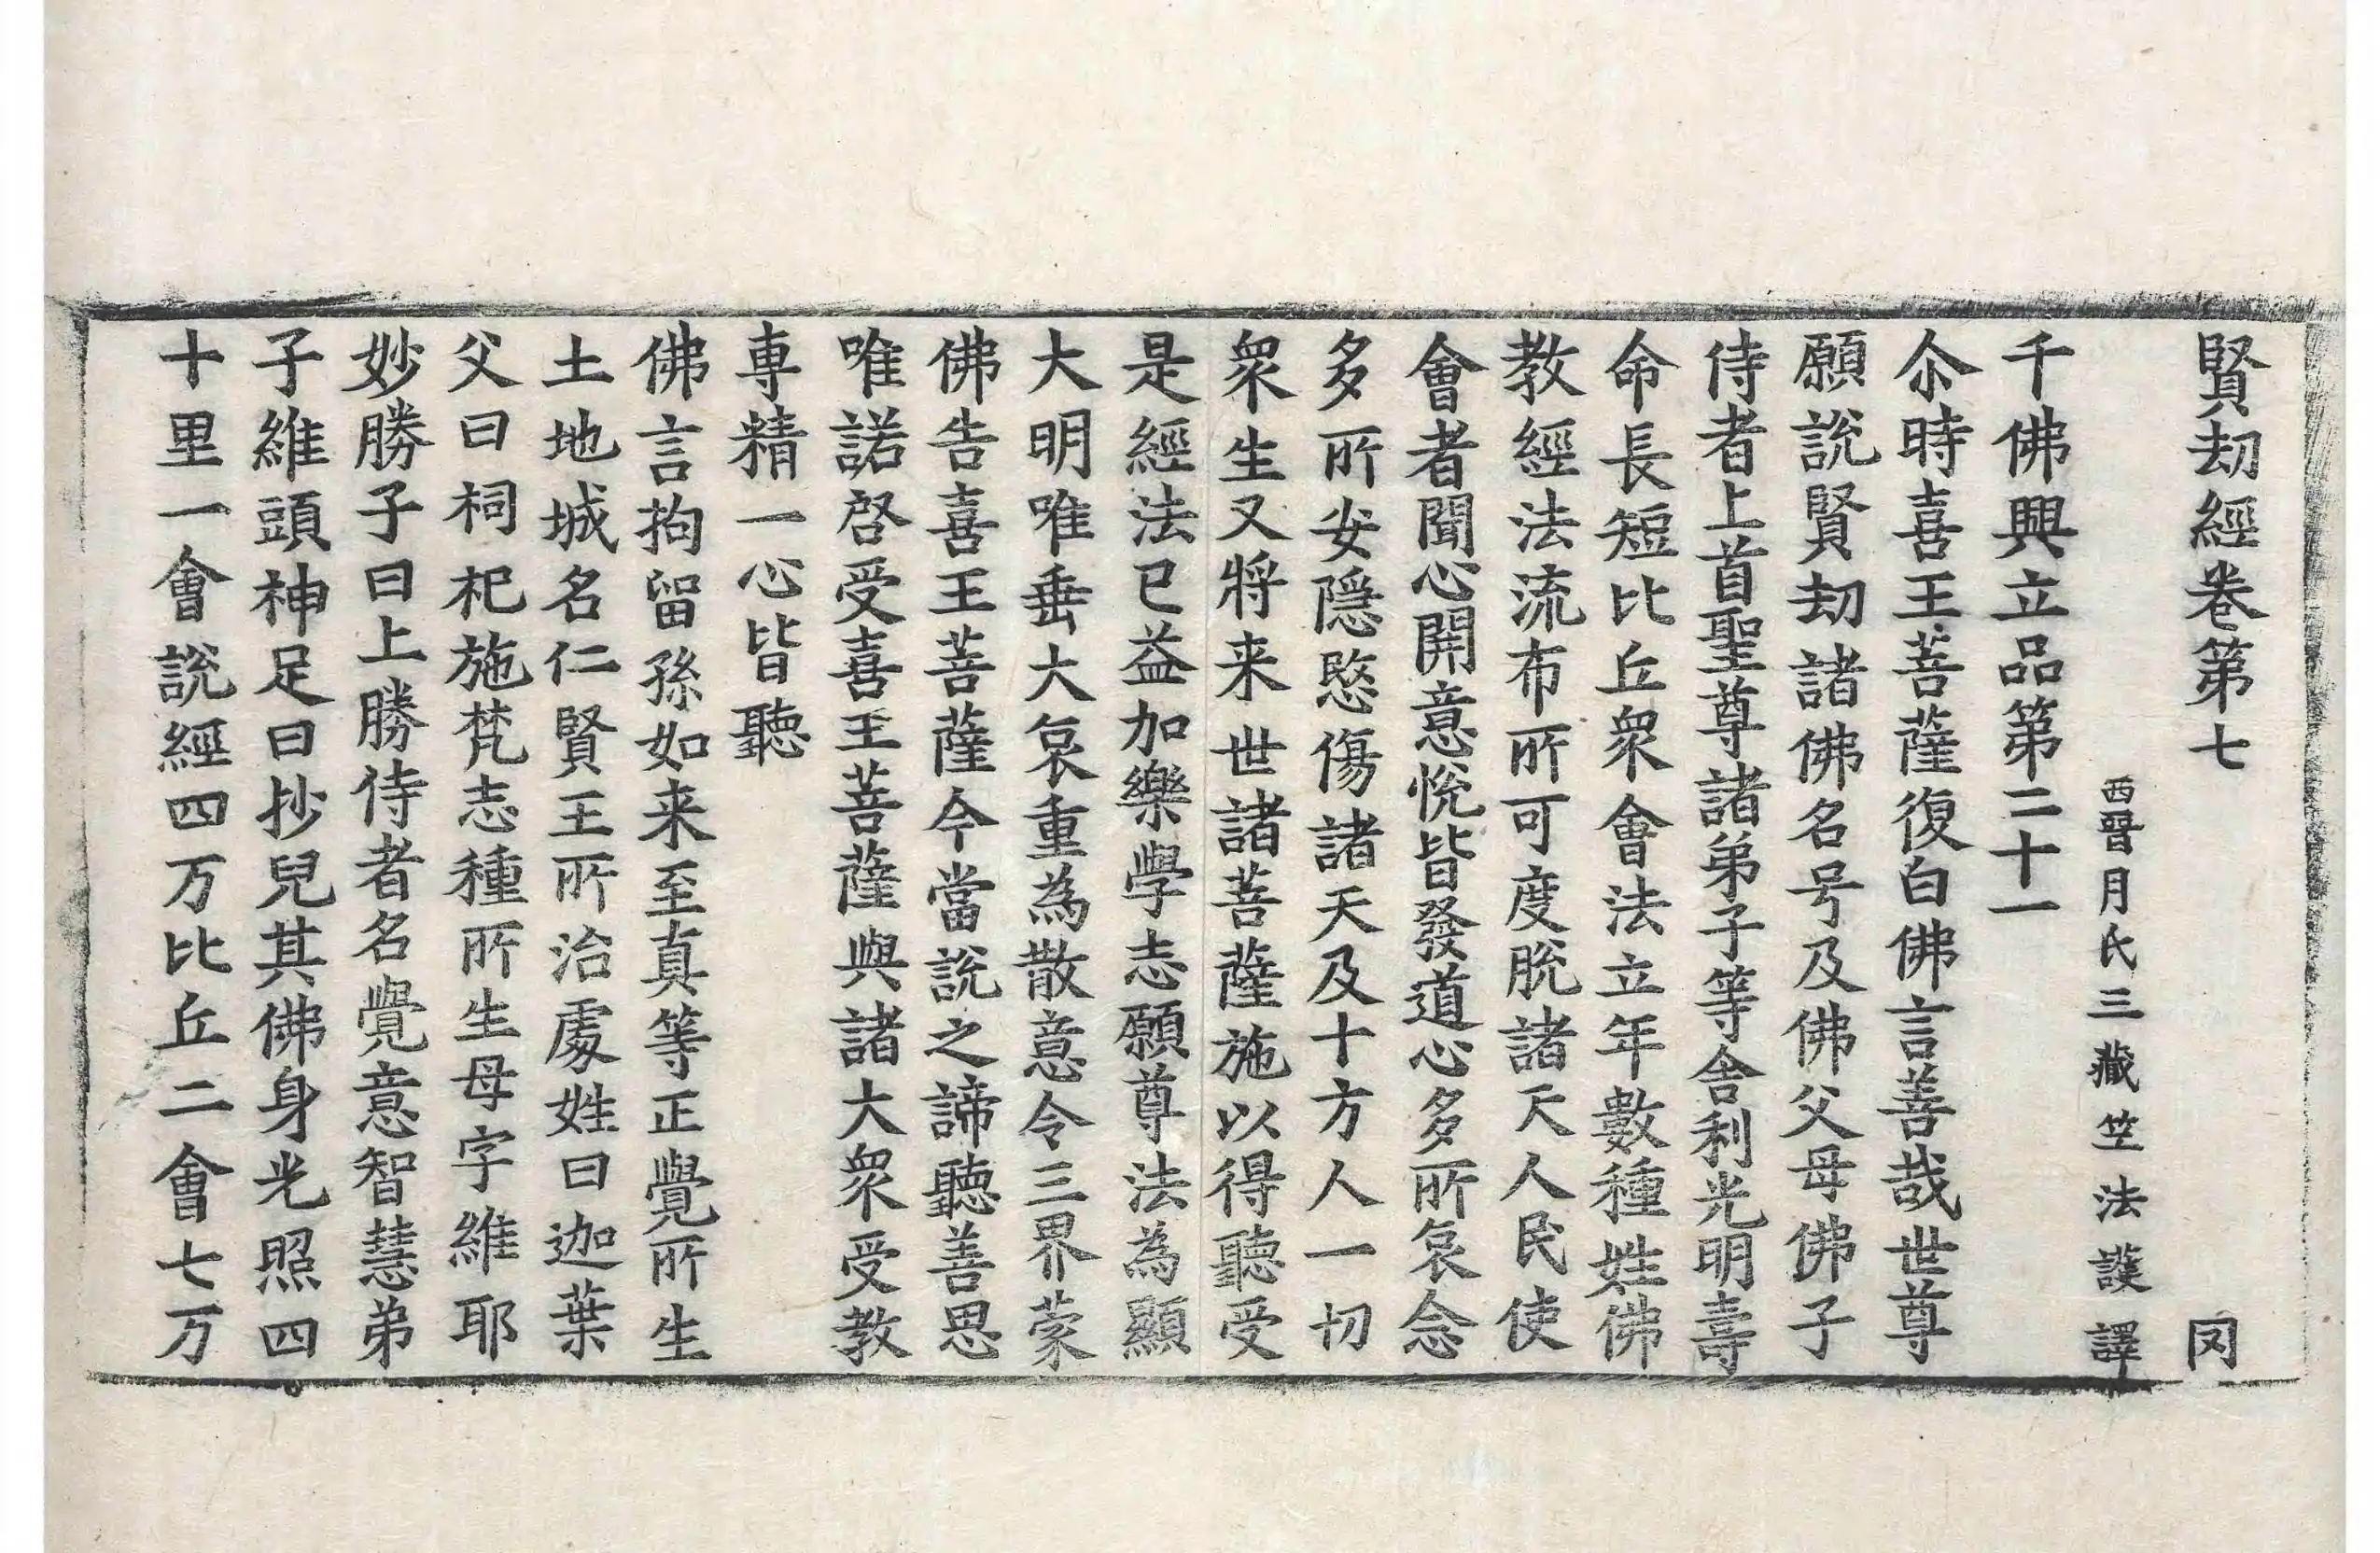 賢劫經卷第七 罔
西晉月氏三藏竺法護譯
千佛興立品第二十一
尒時喜王菩薩復白佛言善哉世尊
願說賢劫諸佛名号及佛父母佛子
侍者上首聖尊諸弟子等舍利光明壽
命長短比丘眾會法立年數種姓佛
教經法流布所可度脫諸天人民使
會者聞心開意悅皆發道心多所哀念
多所安隱愍傷諸天及十方人一切
眾生又將来世諸菩薩施以得聽受
是經法已益加樂學志願尊法為顯
大明唯垂大哀重為散意令三界蒙
佛告喜王菩薩今當說之諦聽善思
唯諾啓受喜王菩薩與諸大眾受教
專精一心皆聽
佛言拘留孫如来至真等正覺所生
土地城名仁賢王所治處姓曰迦葉
父曰祠祀施梵志種所生母字維耶
妙勝子曰上勝侍者名覺意智慧弟
子維頭神足曰抄兒其佛身光照四
十里一會說經四万比丘二會七万